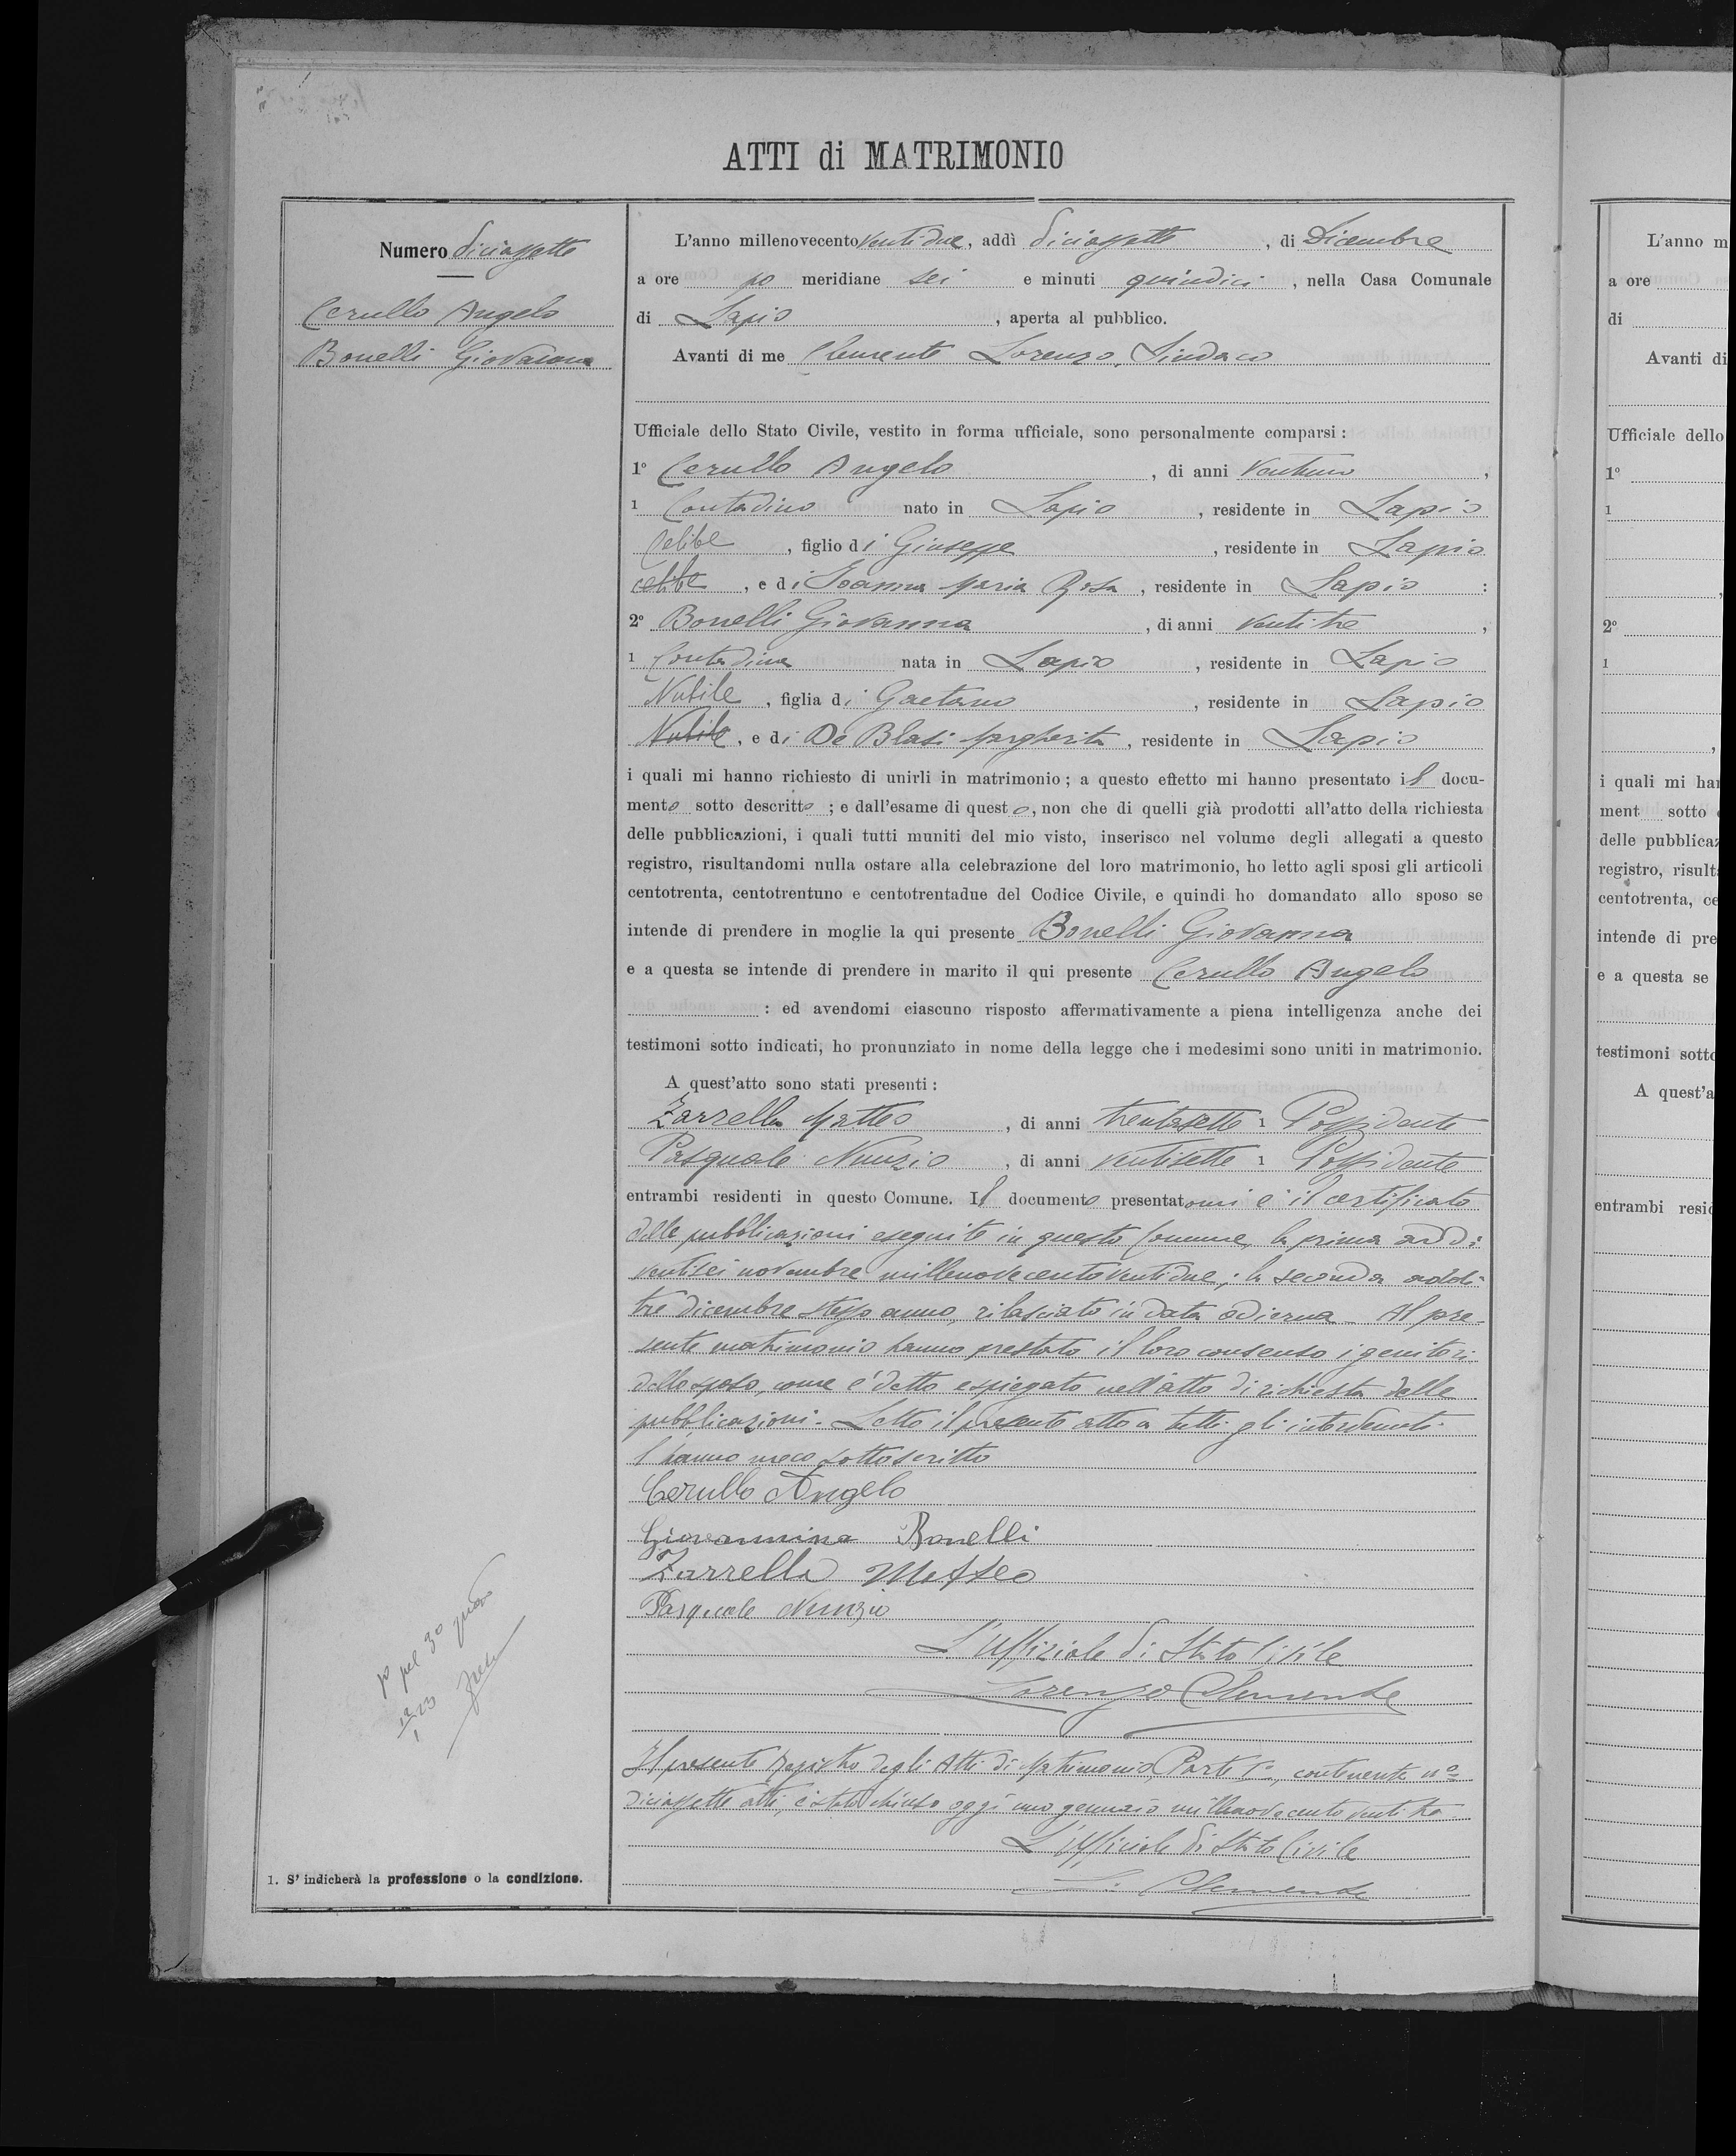 ATTI di MATRIMONIO
Numero diciassette
Cerullo Angelo
Bonelli Giovanna
L'anno millenovecento ventidue, addì diciassette, di Dicembre
a ore po meridiane sei e minuti quindici, nella Casa Comunale
di Lapio, aperta al pubblico.
Avanti di me Clemente Lorenzo, Sindaco
Ufficiale dello Stato Civile, vestito in forma ufficiale, sono personalmente comparsi:
1° Cerullo Angelo, di anni ventuno,
1 Contadino nato in Lapio, residente in Lapio
Celibe, figlio di Giuseppe, residente in Lapio
celibe, e di Ioanna Maria Rosa, residente in Lapio:
2° Bonelli Giovanna, di anni ventitre,
1 Contadina nata in Lapio, residente in Lapio
Nubile, figlia di Gaetano, residente in Lapio
Nubile, e di De Blasi Margherita, residente in Lapio
i quali mi hanno richiesto di unirli in matrimonio; a questo effetto mi hanno presentato il docu-
mento sotto descritto; e dall'esame di questo, non che di quelli già prodotti all'atto della richiesta
delle pubblicazioni, i quali tutti muniti del mio visto, inserisco nel volume degli allegati a questo
registro, risultandomi nulla ostare alla celebrazione del loro matrimonio, ho letto agli sposi gli articoli
centotrenta, centotrentuno e centotrentadue del Codice Civile, e quindi ho domandato allo sposo se
intende di prendere in moglie la qui presente Bonelli Giovanna
e a questa se intende di prendere in marito il qui presente Cerullo Angelo
: ed avendomi ciascuno risposto affermativamente a piena intelligenza anche dei
testimoni sotto indicati, ho pronunziato in nome della legge che i medesimi sono uniti in matrimonio.
A quest'atto sono stati presenti:
Zarrella Matteo, di anni trentasette 1 Possidente
Pasquale Nunzio, di anni ventisette 1 Possidente
entrambi residenti in questo Comune. Il documento presentatomi è il certificato
delle pubblicazioni eseguite in questo Comune, la prima addì
ventisei novembre millenovecentoventidue; la seconda addì
tre dicembre stesso anno, rilasciato in data odierna. Al pre-
sente matrimonio hanno prestato il loro consenso i genitori
dello sposo, come è detto e spiegato nell'atto di richiesta delle
pubblicazioni. Letto il presente atto a tutti gli intervenuti
l'hanno meco sottoscritto
Cerullo Angelo
Giovannina Bonelli
Zarrella Matteo
Pasquale Nunzio
L'Uffiziale di Stato Civile
Lorenzo Clemente
Il presente registro degli Atti di Matrimonio, Parte 1a, contenente no
diciassette atti, è stato chiuso oggi uno gennaio millenovecentoventitre
L'Ufficiale di Stato Civile
L. Clemente
pel 3°
1. S'indicherà la professione o la condizione.
L'anno m
a ore
di
Avanti di
Ufficiale dello
1°
1
2°
1
i quali mi han
ment sotto
delle pubblicaz
registro, risulta
centotrenta, ce
intende di pre
e a questa se
testimoni sotto
A quest'a
entrambi resid